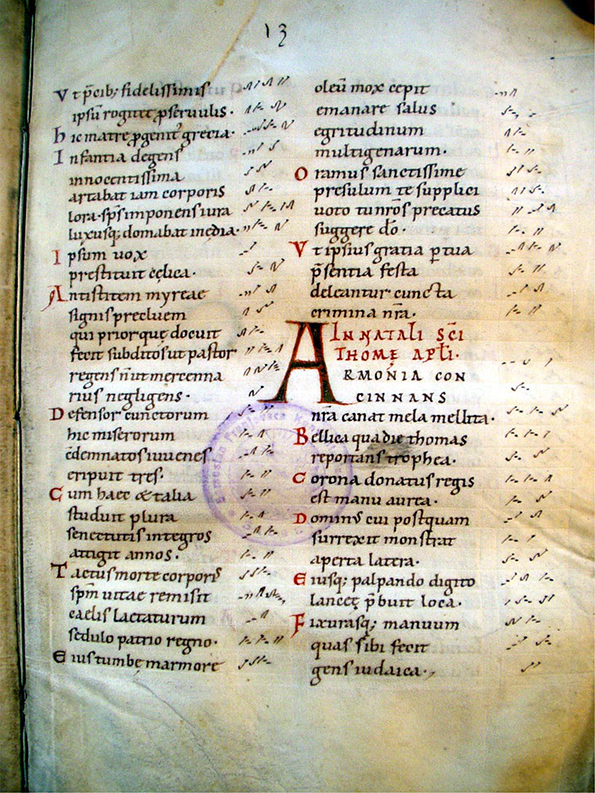 13
Vt p̄cib; fidelissimis
ipsū rogitet p̱ servulis·
hic matre p̱genit᷒ grecia·
Infantia degens
innocentissima
artabat iam corporis
lora· sp̄s imponens iura
luxusq; domabat inedia·
Ipsum uox
prestituit cęlica·
Antistitem myreae
signis precluem
qui prior quę docuit
fecit subditos ut pastor
regens n̄ ut mercenna
rius negligens·
Defensor cunctorum
hic miserorum
cōdemnatos iuuenes
eripuit tres·
Cum haec & talia
studuit plura
senectutis integros
attigit annos·
Tactus morte corporis
sp̄m uitae remisit
caelis laetaturum
sedulo patrio regno·
Eius tumbę marmore
oleū mox cępit
emanare salus
egritudinum
multigenarum·
Oramus sanctissime
presulum te supplici
uoto tu nr̄os precatus
suggere do·
Vt ipsius gratia p̱ tua
p̄sentia festa
deleantur cuncta
crimina nr̄a·
IN NATALI SC̄I
THOMĘ APL̄I·
ARMONIA CON
CINNANS
nr̄a canat mela mellita·
Bellica qua die thomas
reportans trophea·
Corona donatus regis
est manu aurea·
Domin᷒ cui postquam
surrexit monstrat
aperta latera·
Eiusq; palpando digito
lanceę p̄buit loca·
Fixurasq; manuum
quas sibi fecit
gens iudaica·